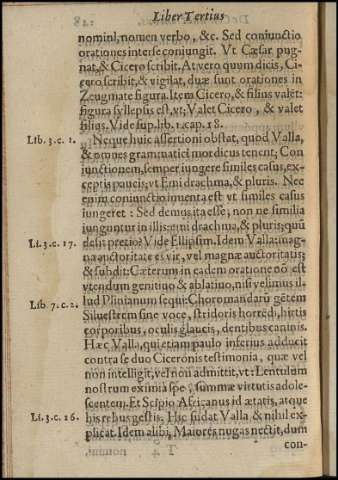 Liber Tertius
nomini, nomen verbo, &c. Sed coniunctio
orationes inter se coniungit. Vt Cæsar pug-
nat, & Cicero scribit. At vero quum dicis, Ci-
cero scribit, & vigilat, duæ sunt orationes in
Zeugmate figura. Item Cicero, & filius valet:
figura syllepsis est, vt; Valet Cicero, & valet
filius. Vide sup. lib. 1. cap. 18.
Lib. 3. c. 2. Neque huic assertioni obstat, quod Valla,
& omnes grammatici mordicus tenent; Con
iunctionem, semper iungere similes casus, ex-
ceptis paucis; vt Emi drachma, & pluris. Nec
enim coniunctio inuenta est vt similes casus
iungeret: Sed demus ita esse, non ne similia
iunguntur in illis: emi drachma, & pluris; quũ
Li. 3. c. 17. desit pretio? Vide Ellipsim. Idem Valla: mag-
na auctoritate es vir, vel magnæ auctoritatis;
& subdit: Cæterum in eadem oratione nõ est
vtendum genitiuo & ablatiuo, nisi velimus il-
Lib. 7. c. 2. lud Plinianum sequi: Choromandarũ gẽtem
Siluestrem sine voce, stridoris horredi, hirtis
corporibus, oculis glaucis, dentibus caninis.
Hæc Valla, qui etiam paulo inferius adducit
contra se duo Ciceronis testimonia, quæ vel
non intelligit, vel non admittit, vt: Lentulum
nostrum eximia spe, summæ virtutis adole-
scentem. Et Scipio Africanus id ætatis, atque
Li. 3. c. 16. his rebus gestis. Hic sudat Valla & nihil ex-
plicat. Idem alibi, Maiores nugas nectit, dum
con-